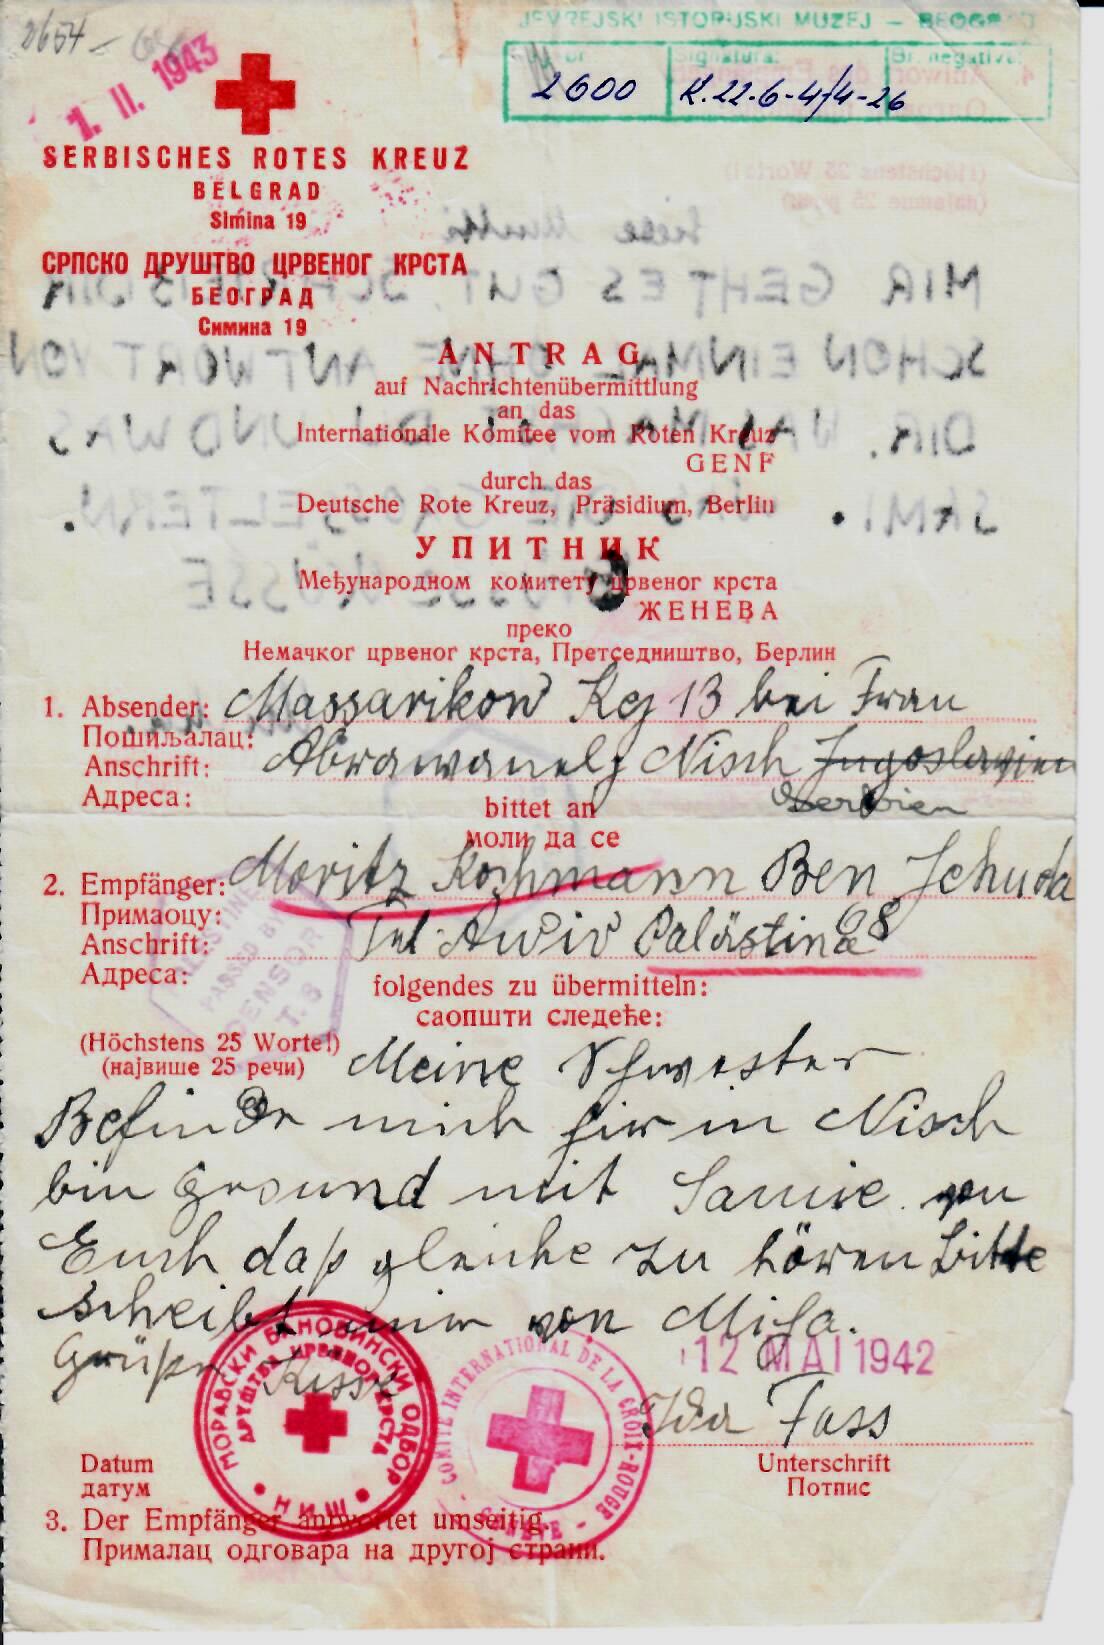 2654
1. II. 1943
JEVREJSKI ISTORIJSKI MUZEJ — BEOGRAD
Signatura: Br. negativa:
2600 K.22-6-4/4-26
SERBISCHES ROTES KREUZ
BELGRAD
Simina 19
СРПСКО ДРУШТВО ЦРВЕНОГ КРСТА
БЕОГРАД
Симина 19
ANTRAG
auf Nachrichtenübermittlung
an das
Internationale Komitee vom Roten Kreuz
GENF
durch das
Deutsche Rote Kreuz, Präsidium, Berlin
УПИТНИК
Међународном комитету црвеног крста
ЖЕНЕВА
преко
Немачког црвеног крста, Претседништво, Берлин
1. Absender: Massarikow Kej 13 bei Frau
Пошиљалац:
Anschrift: Abrawanelj Nisch Jugoslavien
Адреса: Serbien
bittet an
моли да се
2. Empfänger: Moritz Kochmann Ben Jehuda
Примаоцу: 68
Anschrift: Tel-Awiv Palästina
Адреса:
PALESTINE
PASSED BY
CENSOR
T.8
folgendes zu übermitteln:
саопшти следеће:
(Höchstens 25 Worte!)
(највише 25 речи)
Meine Schwester
Befinder mich hir in Nisch
bin Gesund mit Samie. von
Euch daß gleiche zu hören bitte
scheibt mir von Miša.
Grüße Kisse
12 MAI 1942
Ida Fass
МОРАВСКИ БАНОВИНСКИ ОДБОР
ДРУШТВА ЦРВЕНОГ КРСТА
НИШ
COMITÉ INTERNATIONAL DE LA CROIX-ROUGE
GENÈVE
Datum Unterschrift
датум Потпис
3. Der Empfänger antwortet umseitig.
Прималац одговара на другој страни.